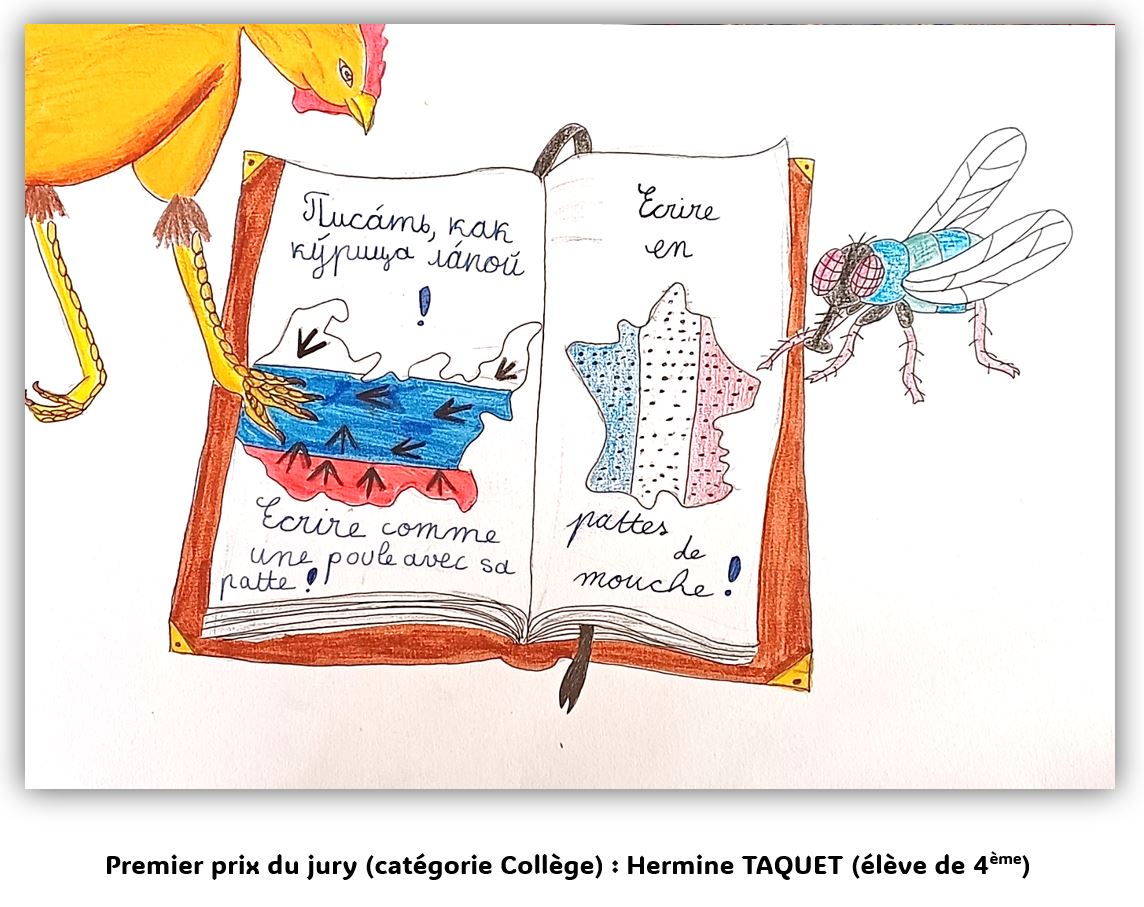 Писа́ть, как
ку́рица ла́пой
!
Ecrire comme
une poule avec sa
patte !
Ecrire
en
pattes
de
mouche !
Premier prix du jury (catégorie Collège) : Hermine TAQUET (élève de 4ème)